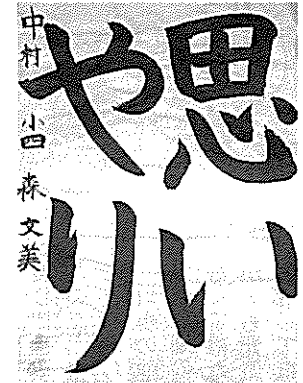 思い
やり
中村 小四 森文美